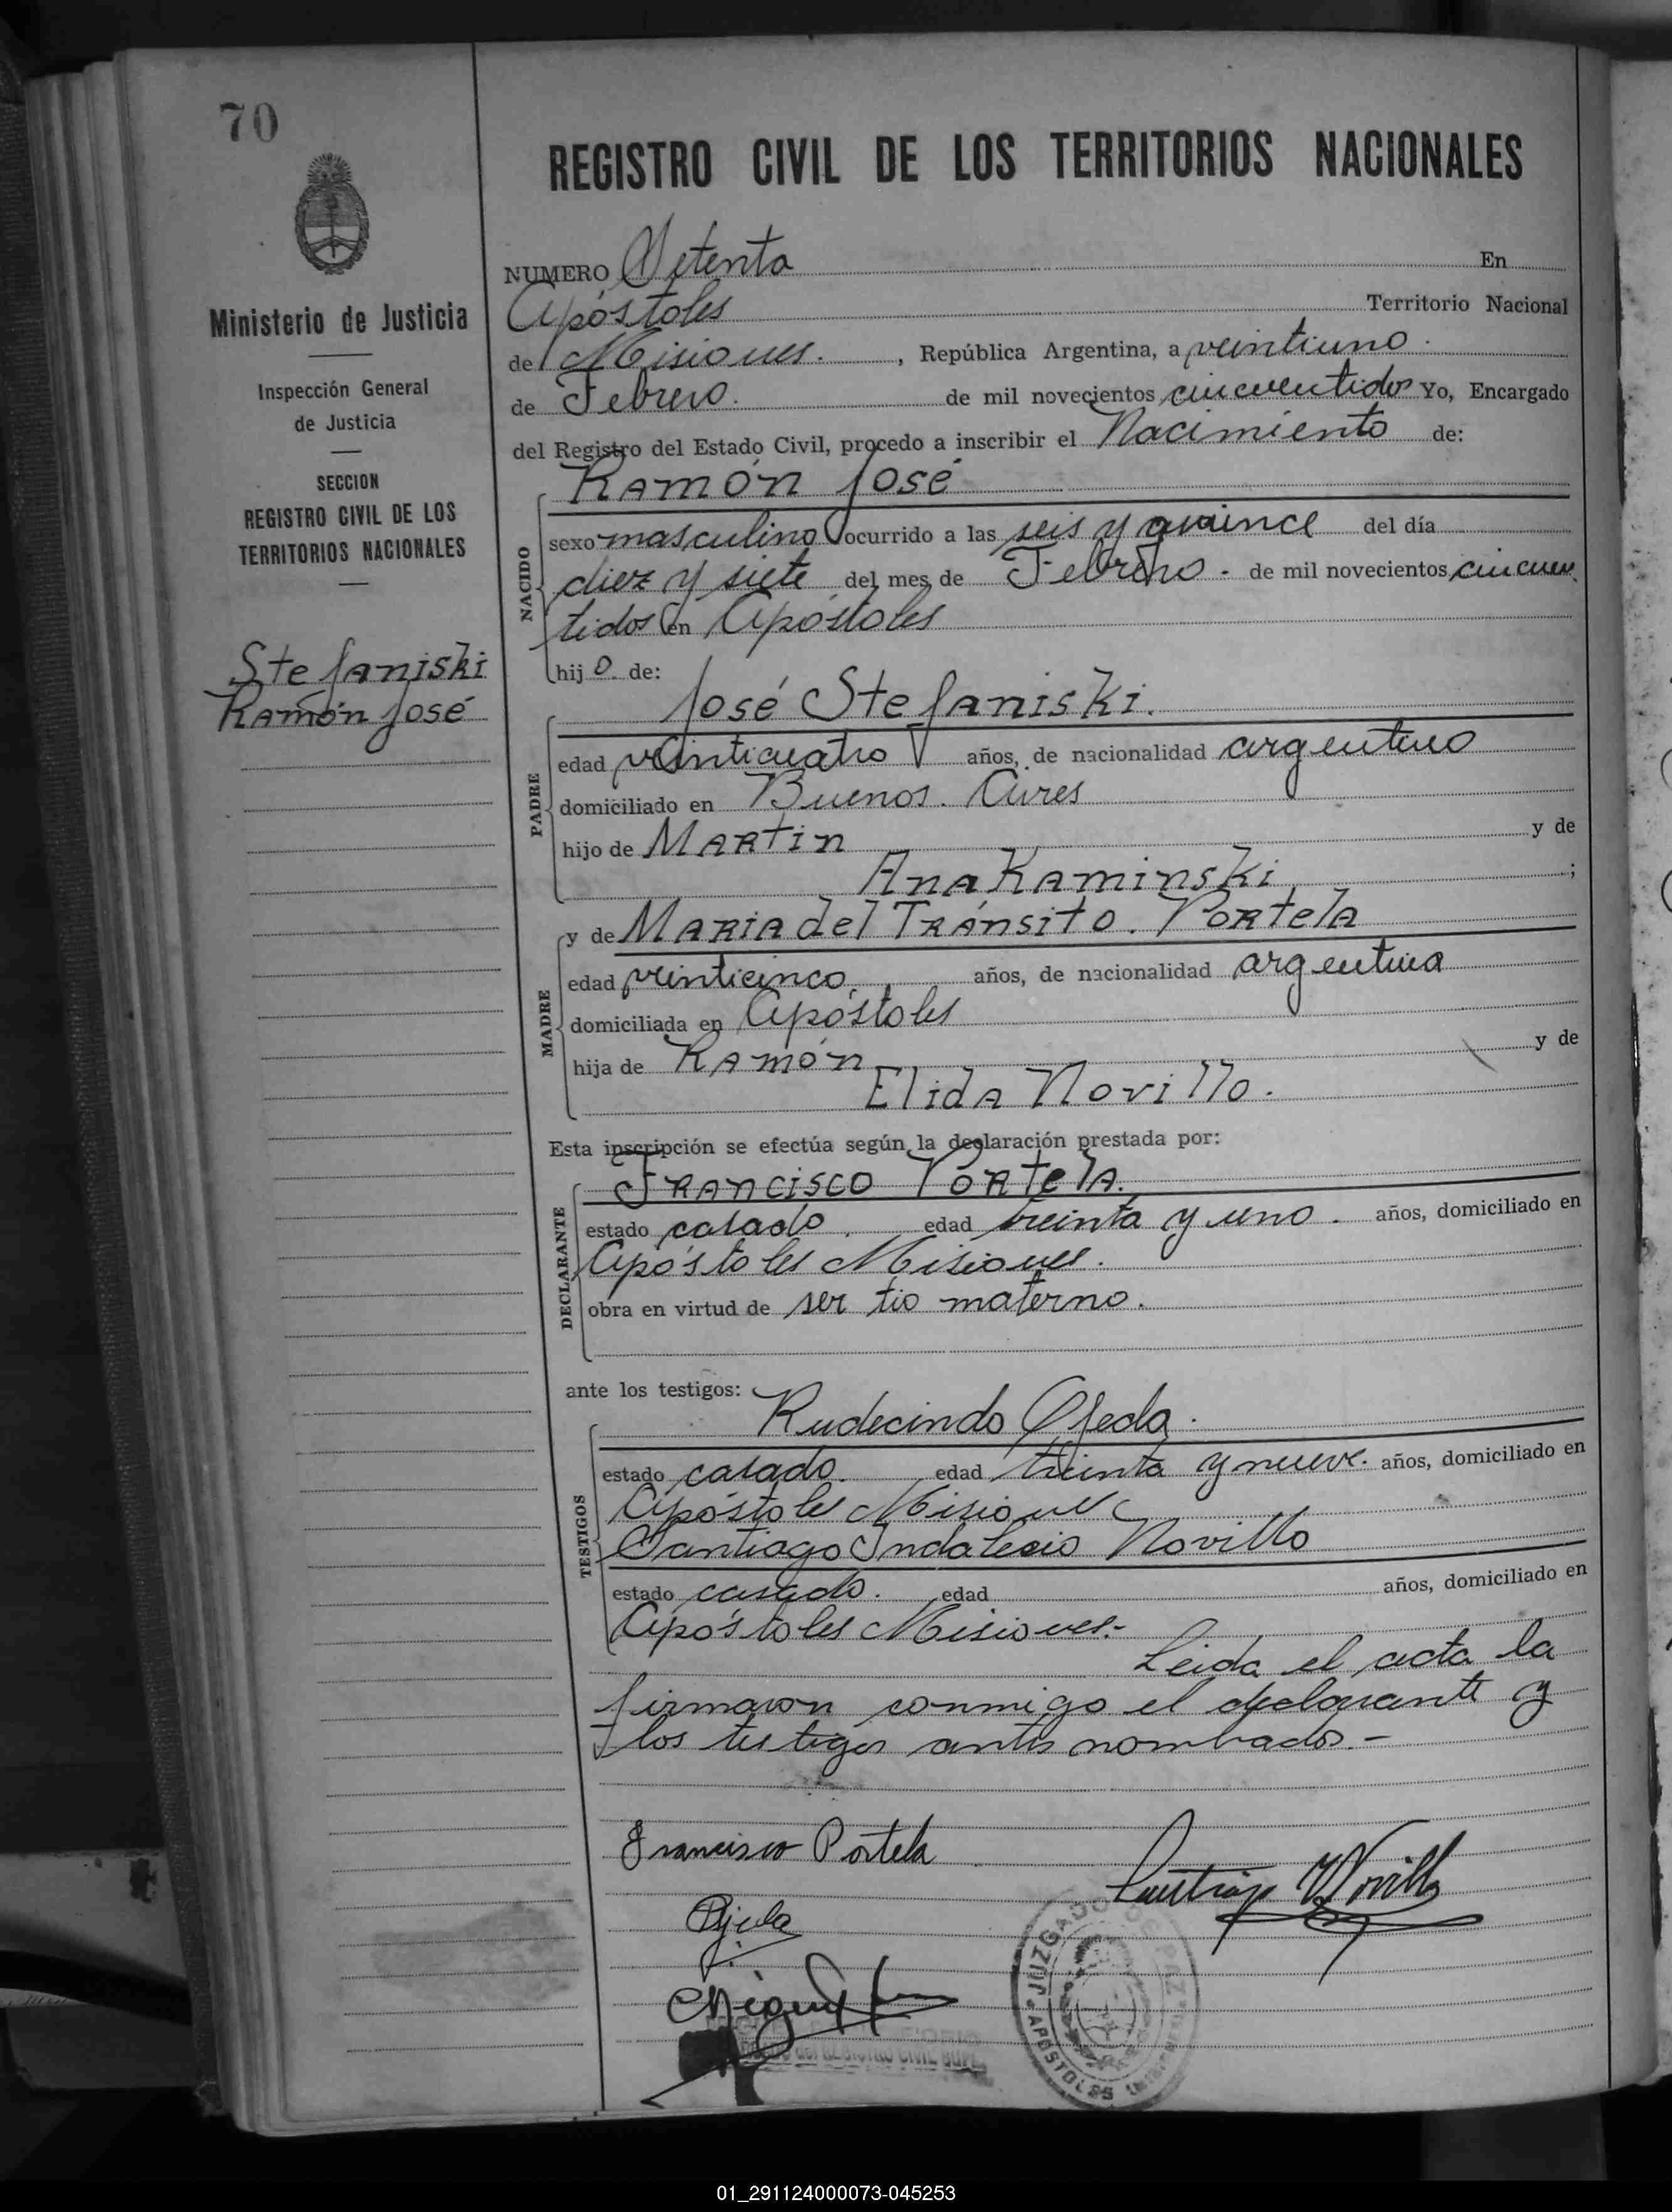 70
REGISTRO CIVIL DE LOS TERRITORIOS NACIONALES
Ministerio de Justicia
Inspección General
de Justicia
SECCION
REGISTRO CIVIL DE LOS
TERRITORIOS NACIONALES
Stefaniski
Ramón José
NUMERO Setenta En
Apóstoles Territorio Nacional
de Misiones. , República Argentina, a veintiuno.
de Febrero. de mil novecientos cincuentidos Yo, Encargado
del Registro del Estado Civil, procedo a inscribir el Nacimiento de:
NACIDO
Ramón José
sexo masculino ocurrido a las seis y quince del día
diez y siete del mes de Febrero. de mil novecientos cincuen
tidos en Apóstoles
hijo. de:
PADRE
José Stefaniski.
edad veinticuatro años, de nacionalidad argentino
domiciliado en Buenos. Aires
hijo de Martin y de
Ana Kaminski ;
MADRE
y de Maria del Tránsito. Portela
edad veinticinco. años, de nacionalidad argentina
domiciliada en Apóstoles
hija de Ramón y de
Elida Novillo.
Esta inscripción se efectúa según la declaración prestada por:
DECLARANTE
Francisco Portela.
estado casado. edad treinta y uno. años, domiciliado en
Apóstoles Misiones.
obra en virtud de ser tio materno.
ante los testigos:
TESTIGOS
Rudecindo Ojeda.
estado casado. edad treinta y nueve. años, domiciliado en
Apóstoles Misiones
Santiago Indalecio Novillo
estado casado. edad años, domiciliado en
Apóstoles Misiones.-
Leida el acta la
firmaron conmigo el declarante y
los testigos antes nombados.-
Francisco Portela
Santiago Y Novillo
Ojeda
JUZGADO PAZ
APOSTOLES
REGISTRO CIVIL
01_291124000073-045253